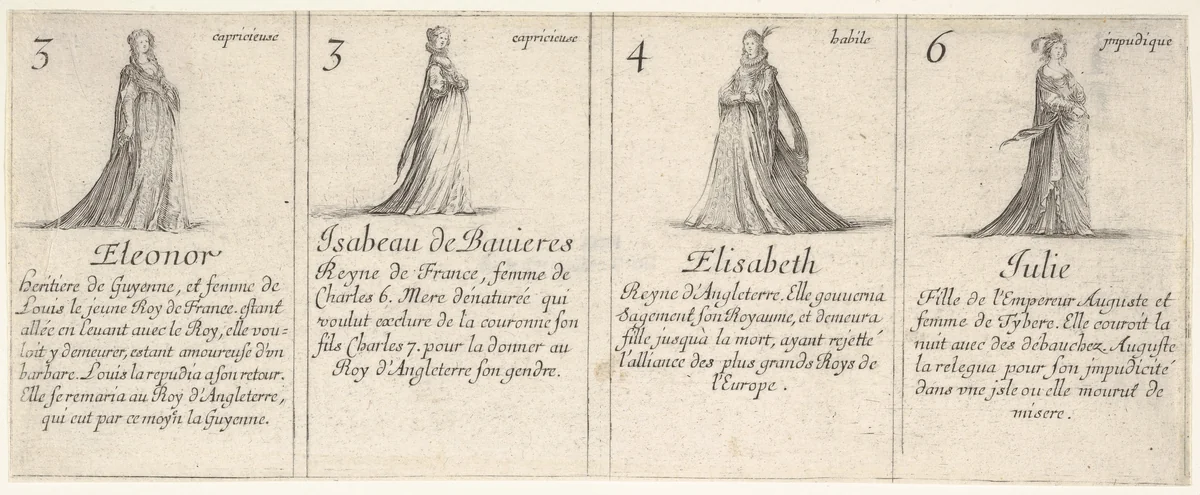 3
capricieuse
Eleonor
heritiere de Guyenne, et femme de
Louis le jeune Roy de France. estant
allée en leuant auec le Roy, elle vou=
loit y demeurer, estant amoureuse d'vn
barbare. Louis la repudia a son retour.
Elle se remaria au Roy d'Angleterre,
qui eut par ce moyen la Guyenne.
3
capricieuse
Isabeau de Bauieres
Reyne de France, femme de
Charles 6. Mere dénaturée qui
voulut exclure de la couronne son
fils Charles 7. pour la donner au
Roy d'Angleterre son gendre.
4
habile
Elisabeth
Reyne d'Angleterre. Elle gouuerna
sagement son Royaume, et demeura
fille jusquà la mort, ayant rejetté
l'alliance des plus grands Roys de
l'Europe.
6
jmpudique
Iulie
Fille de l'Empereur Auguste et
femme de Tybere. Elle couroit la
nuit auec des débauchez. Auguste
la relegua pour son jmpudicité
dans vne jsle ou elle mourut de
misere.